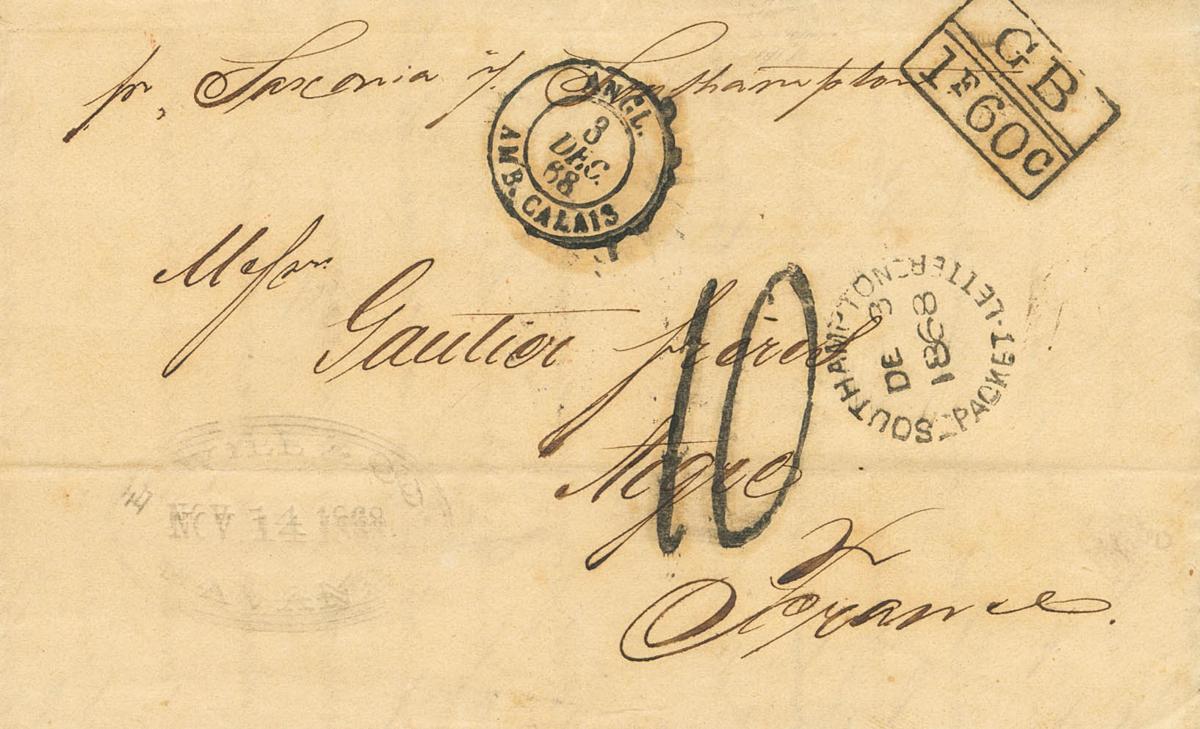 pr, Saxonia y. Southampton
GB
1F60c
ANGL.
3
DEC.
68
AMB. CALAIS
Messrs
Gautier frères
10
SOUTHAMPTON - PACKET-LETTER
DE 3
1868
France
NOV 14 1868